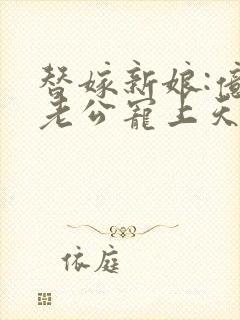 替嫁新娘:億
老公寵上天
依庭